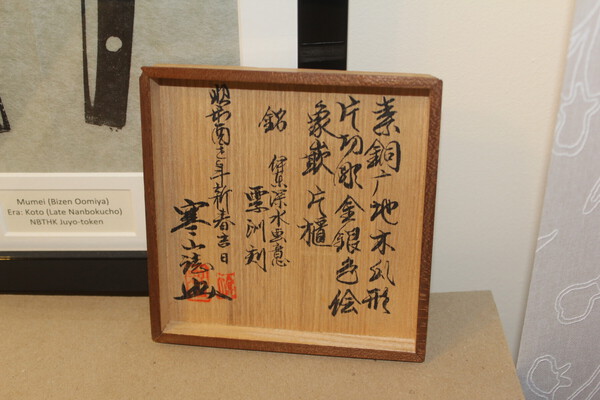 素銅广地木瓜形
片切彫金銀色絵
象嵌片櫃
銘
伊東深水画意
雲洲刻
昭和酉年新春吉日
寒山誌
Mumei (Bizen Oomiya)
Era: Koto (Late Nanbokucho)
NBTHK Juyo-token